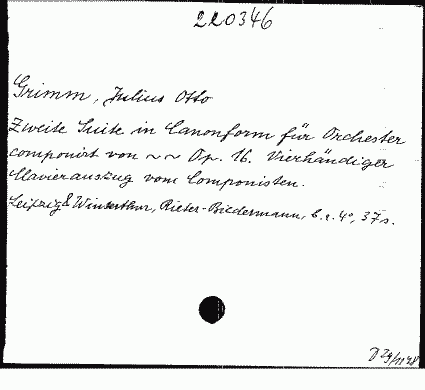 220346
Grimm, Julius Otto
Zweite Suite in Canonform für Orchester
componirt von ~ ~ Op. 16. Vierhändiger
Clavierauszug vom Componisten.
Leipzig & Winterthur, Rieter-Biedermann, b. 4°, 37 s.